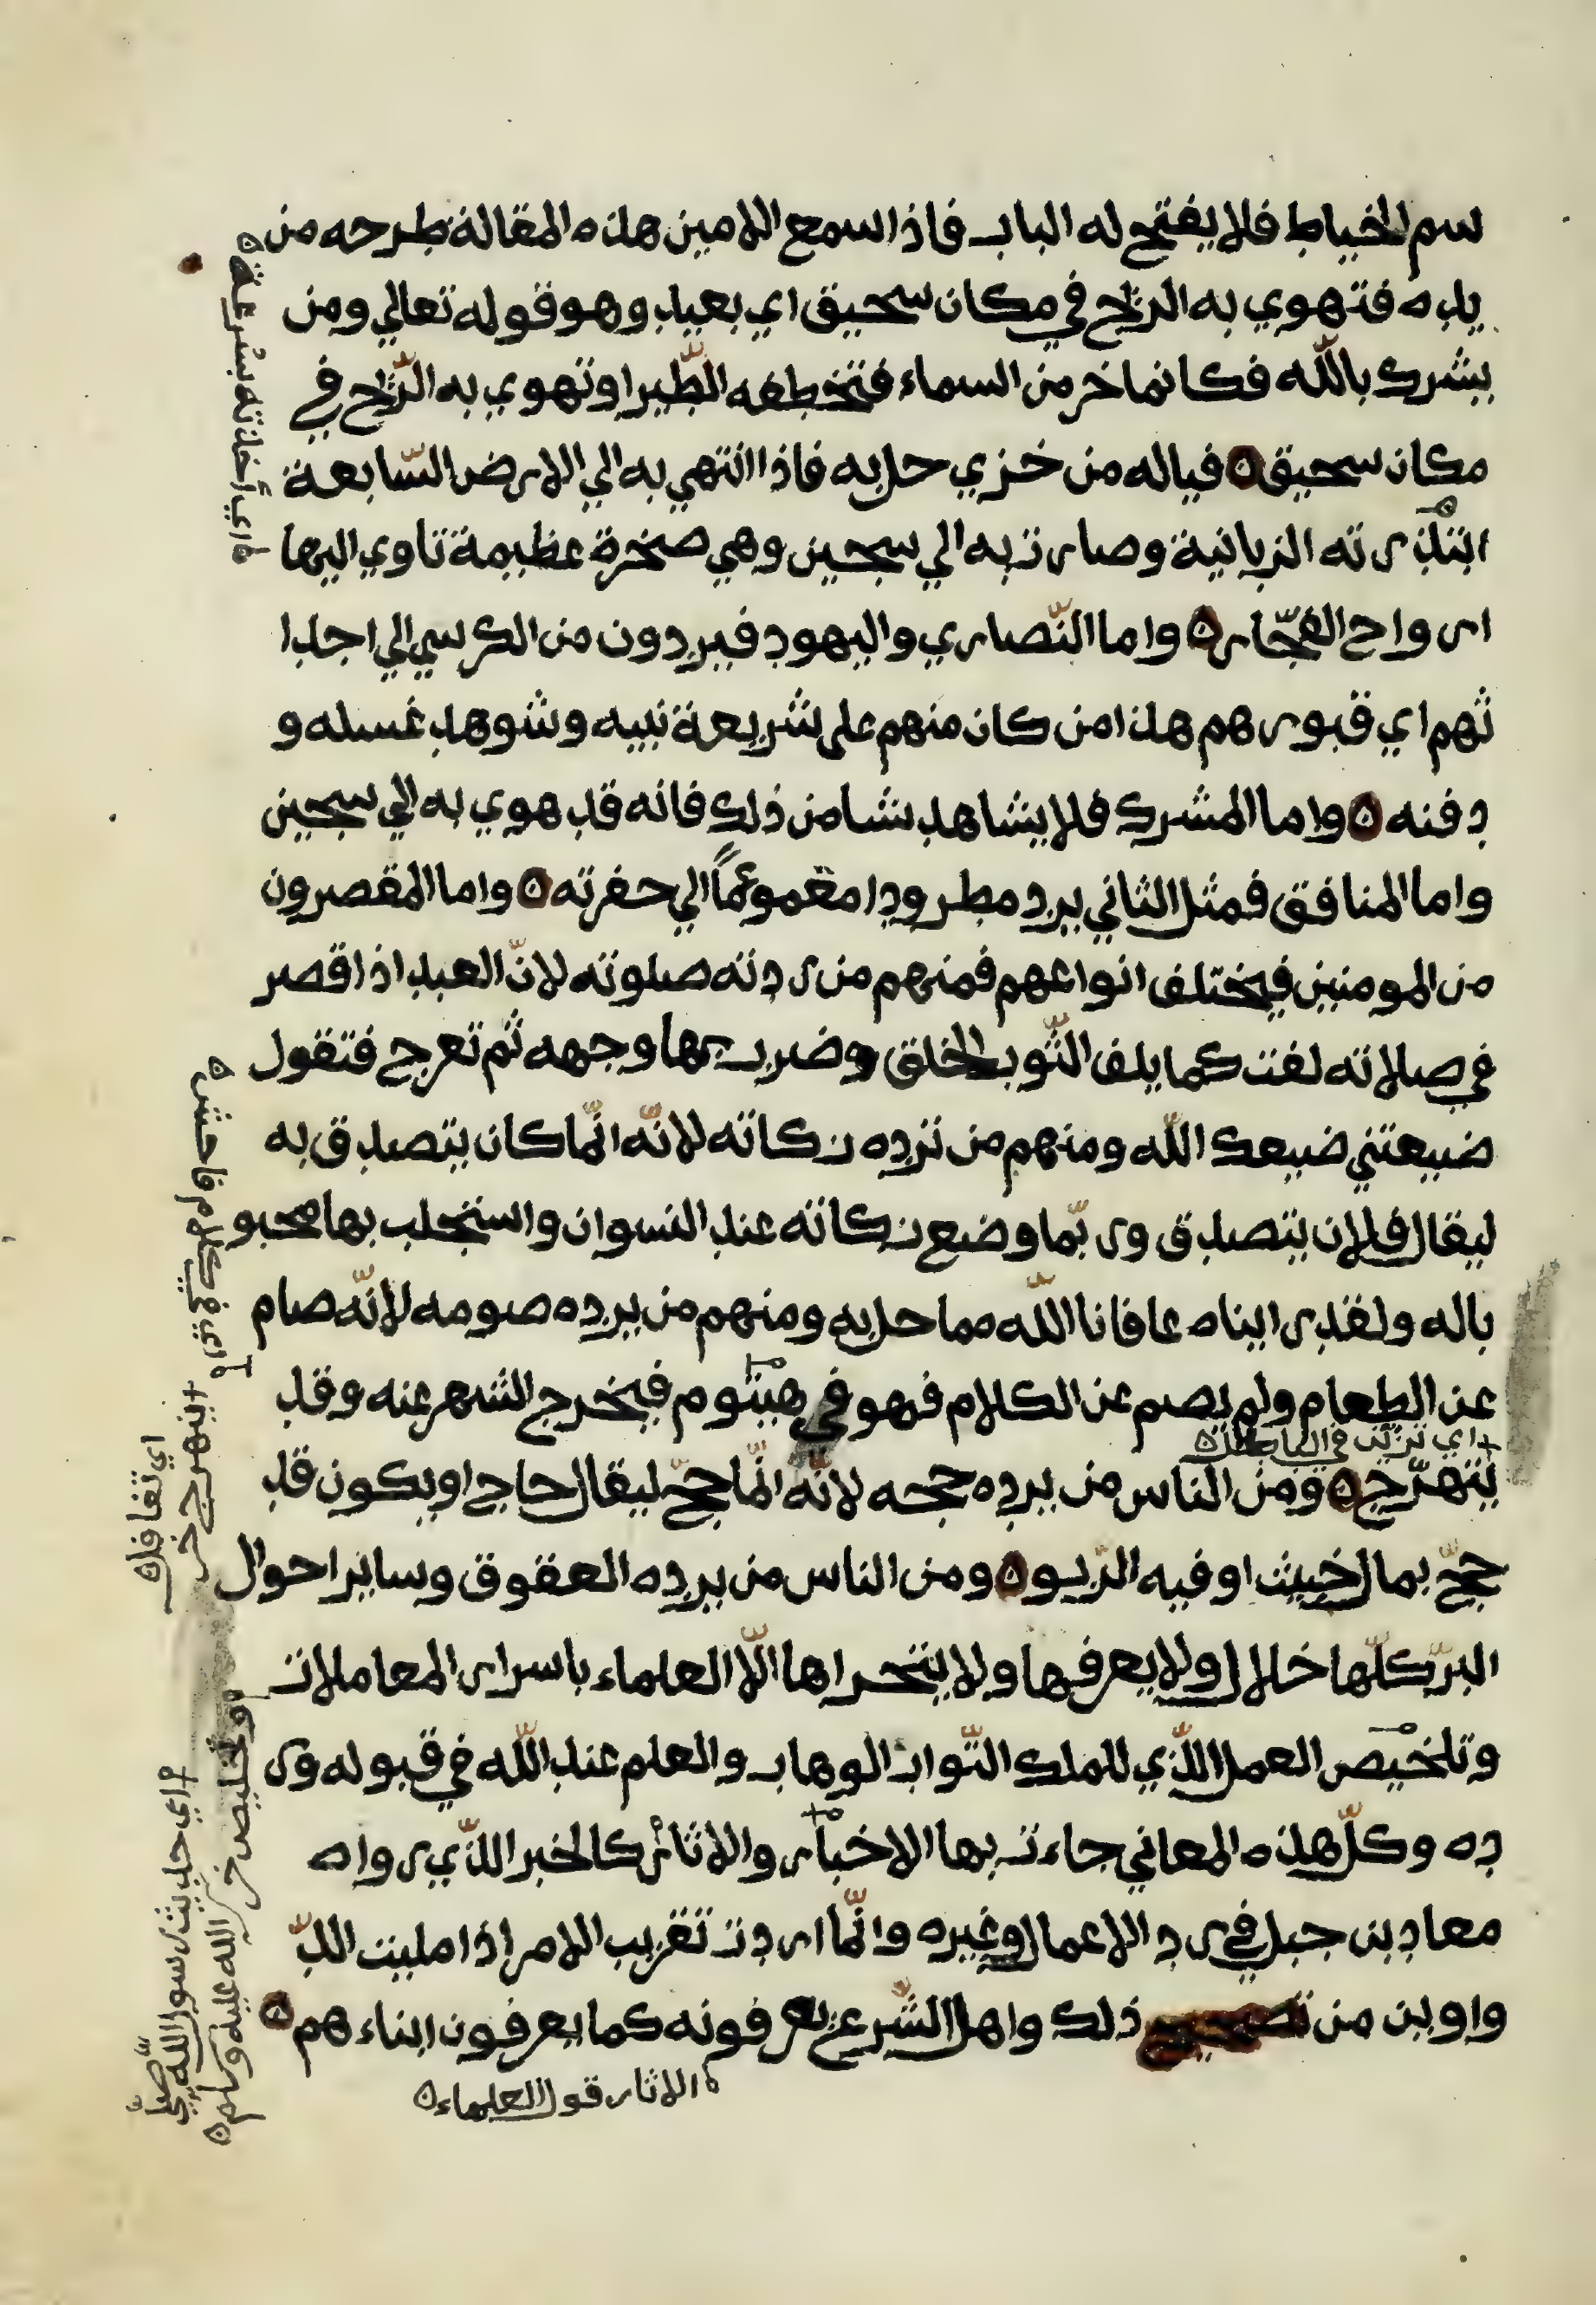 سم الخياط فلا يفتح له الباب فاذا سمع الامين هذه المقالة طرحه من
يده فتهوي به الريح في مكان سحيق اي بعيد وهو قوله تعالي ومن
يشرك باللّه فكانما خر من السماء فتخطفه الطّير او تهوي به الرّيح في
مكان سحيق ۝ فياله من خزي حل به فاذا انتهي به الي الارض السّابعة
ابتدرته الزبانية وصارت به الي سجين وهي صخرة عظيمة تاوي اليها
ارواح الفجّار ۝ واما النّصاري واليهود فيردون من الكرسي الي اجدا
ثهم اي قبورهم هذا من كان منهم علي شريعة نبيه وشوهد غسله و
دفنه ۝ واما المشرك فلا يشاهد شيا من ذلك فانه قد هوي به الي سجين
واما المنافق فمثل الثاني يرد مطرودا مغموماً الي حفرته ۝ واما المقصرون
من المومنين فيختلف انواعهم فمنهم من ردته صلوته لانّ العبد اذا قصر
في صلاته لفت كما يلف الثّوب الخلق وضرب بها وجهه ثم تعرج فتقول
ضيعتني ضيعك اللّه ومنهم من تزده زكاته لانّه انّما كان يتصدق به
ليقال فلان يتصدق وربّما وضع زكاته عند النسوان واستجلب بها محبو
باله ولقد رايناه عافانا اللّه مما حل به ومنهم من يرده صومه لانّه صام
عن الطعام ولم يصم عن الكلام فهو في هيتوم فيخرج الشهر عنه وقد
اي تزين في الباطل ۝
يتهرّج ۝ ومن الناس من يرده حجه لانّه انّما حجّ ليقال حاج او يكون قد
حجّ بمال خبيث او فيه الرّبو ۝ ومن الناس من يرده العقوق وساير احوال
البرّ كلّها خلال ولا يعرفها ولا يتحراها الّا العلماء باسرار المعاملات
وتلخيص العمل الّذي للملك التّواب الوهاب والعلم عند اللّه في قبوله ور
ده وكلّ هذه المعاني جاءت بها الاخبار والاثار كالخبر الّذي رواه
معاد بن جبل في رد الاعمال وغيره وانّما اردت تقريب الامر اذا مليت الدّ
واوين من تصحيح ذلك واهل الشّرع يعرفونه كما يعرفون ابناءهم ۝
الاثار قول العلماء ۝
اي أخذته بسرعة ۝
اي في كلام فاحش ۝
اي حديث رسول اللّه صلّي
اللّه عليه وسلم ۝